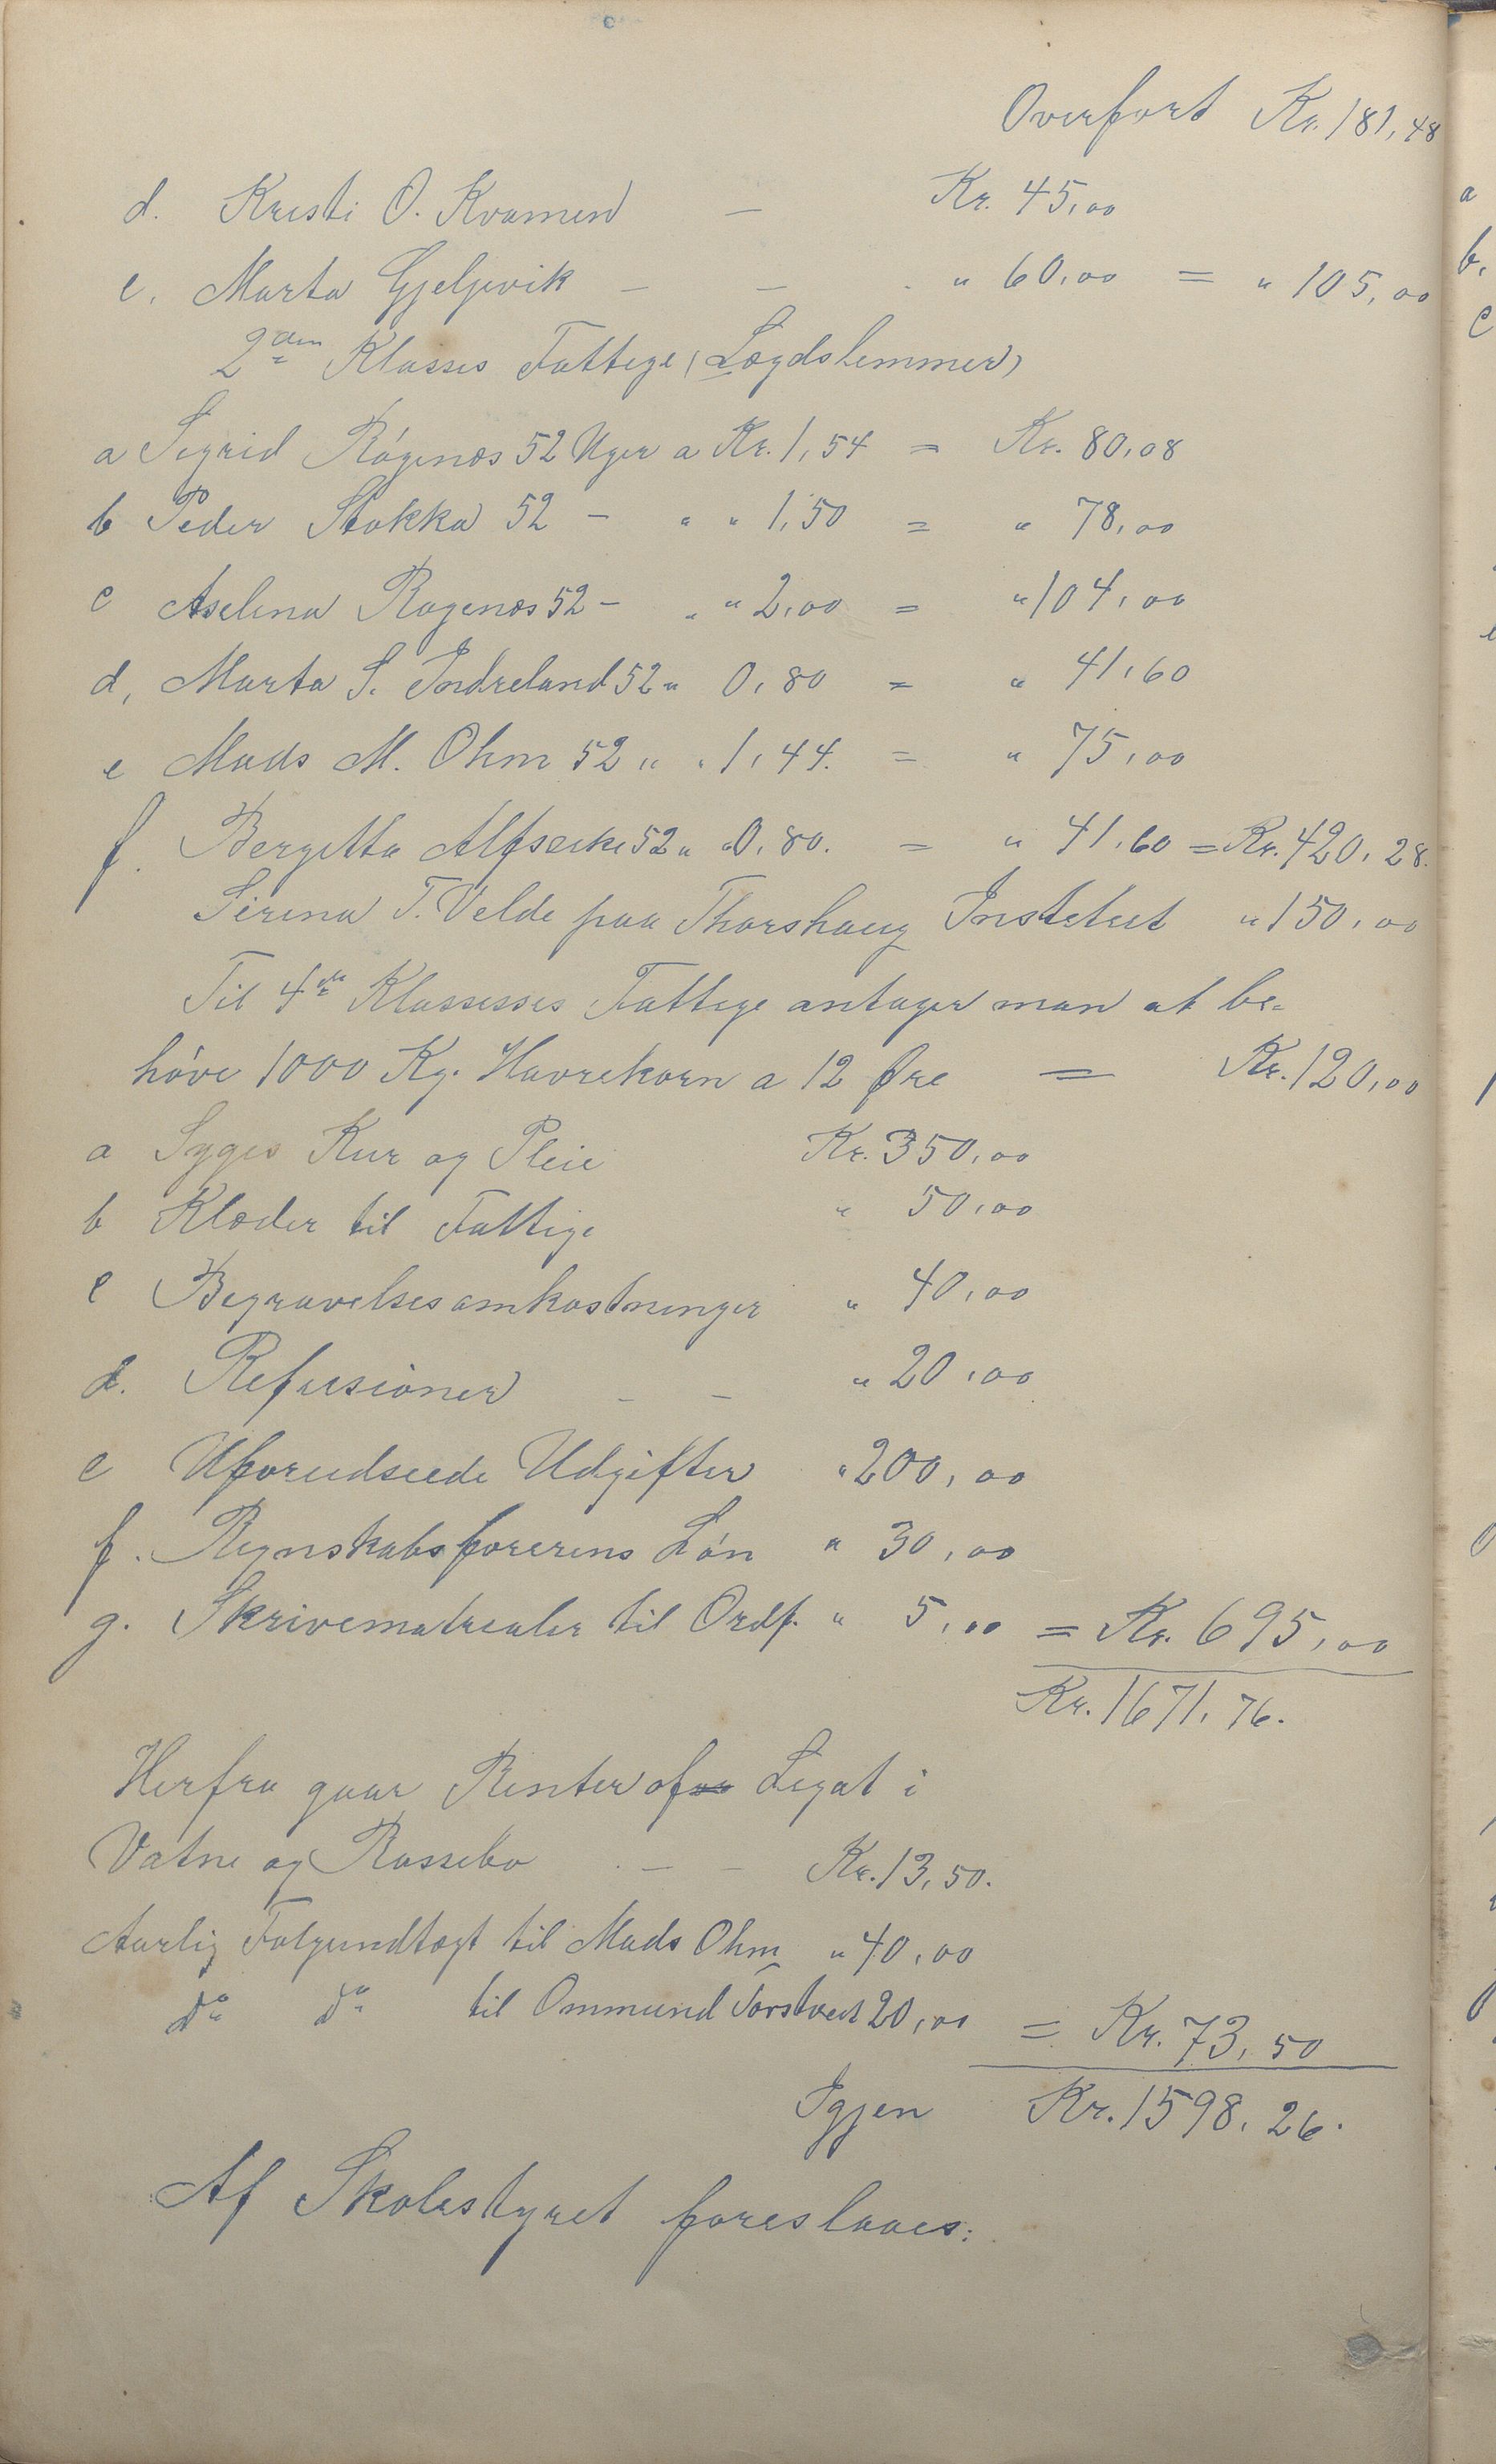 Overført Kr. 181,48
d. Kristi O. Kvamen — Kr. 45,00
e. Marta Gjeljevik — — " 60,00 = " 105,00
2den Klasses Fattige (Lægdslemmer)
a Sigrid Rógenæs 52 Uger a Kr. 1,54 = Kr. 80,08
b Peder Stokka 52 — " " 1,50 = " 78,00
c Aselina Rogenæs 52 — " " 2,00 = " 104,00
d, Marta S. Indreland 52 " 0,80 = " 41,60
e Mads M. Ohm 52 " " 1,44. = " 75,00
f. Bergitta Alfseike 52 " " 0,80. = " 41,60 = Kr. 420,28.
Sirina T. Velde paa Thorshaug Institut " 150,00
Til 4de Klassesses Fattige antager man at be=
høve 1000 Kg. Havrekorn a 12 Øre = Kr. 120,00
a Syges Kur og Pleie Kr. 350,00
b Klæder til Fattige " 50,00
c Begravelsesomkostninger " 40,00
d. Refusioner — — " 20,00
e Uforudseede Udgifter " 200,00
f. Regnskabsførerens Lón " 30,00
g. Skrivematrealer til Ordf. " 5,00 = Kr. 695,00
Kr. 1671,76.
Herfra gaar Renter af Legat i
Vatne og Rossebo — — Kr. 13,50.
Aarlig Folgeundtægt til Mads Ohm " 40,00
do do til Ommund Torstvedt 20,00 = Kr. 73,50
Igjen Kr. 1598,26.
Af Skolestyret foreslaaes: